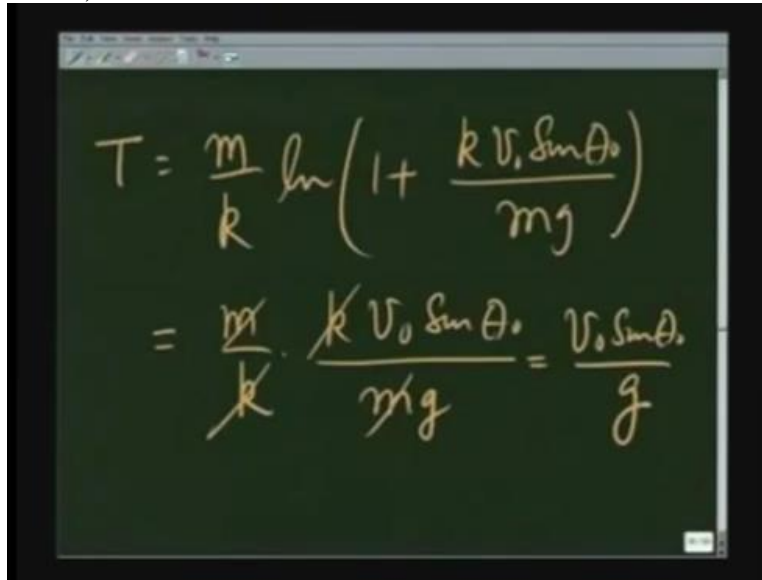 T = m/k ln(1 + k v₀ Sin θ₀ / mg)
= m/k · k v₀ Sin θ₀ / mg = v₀ Sin θ₀ / g